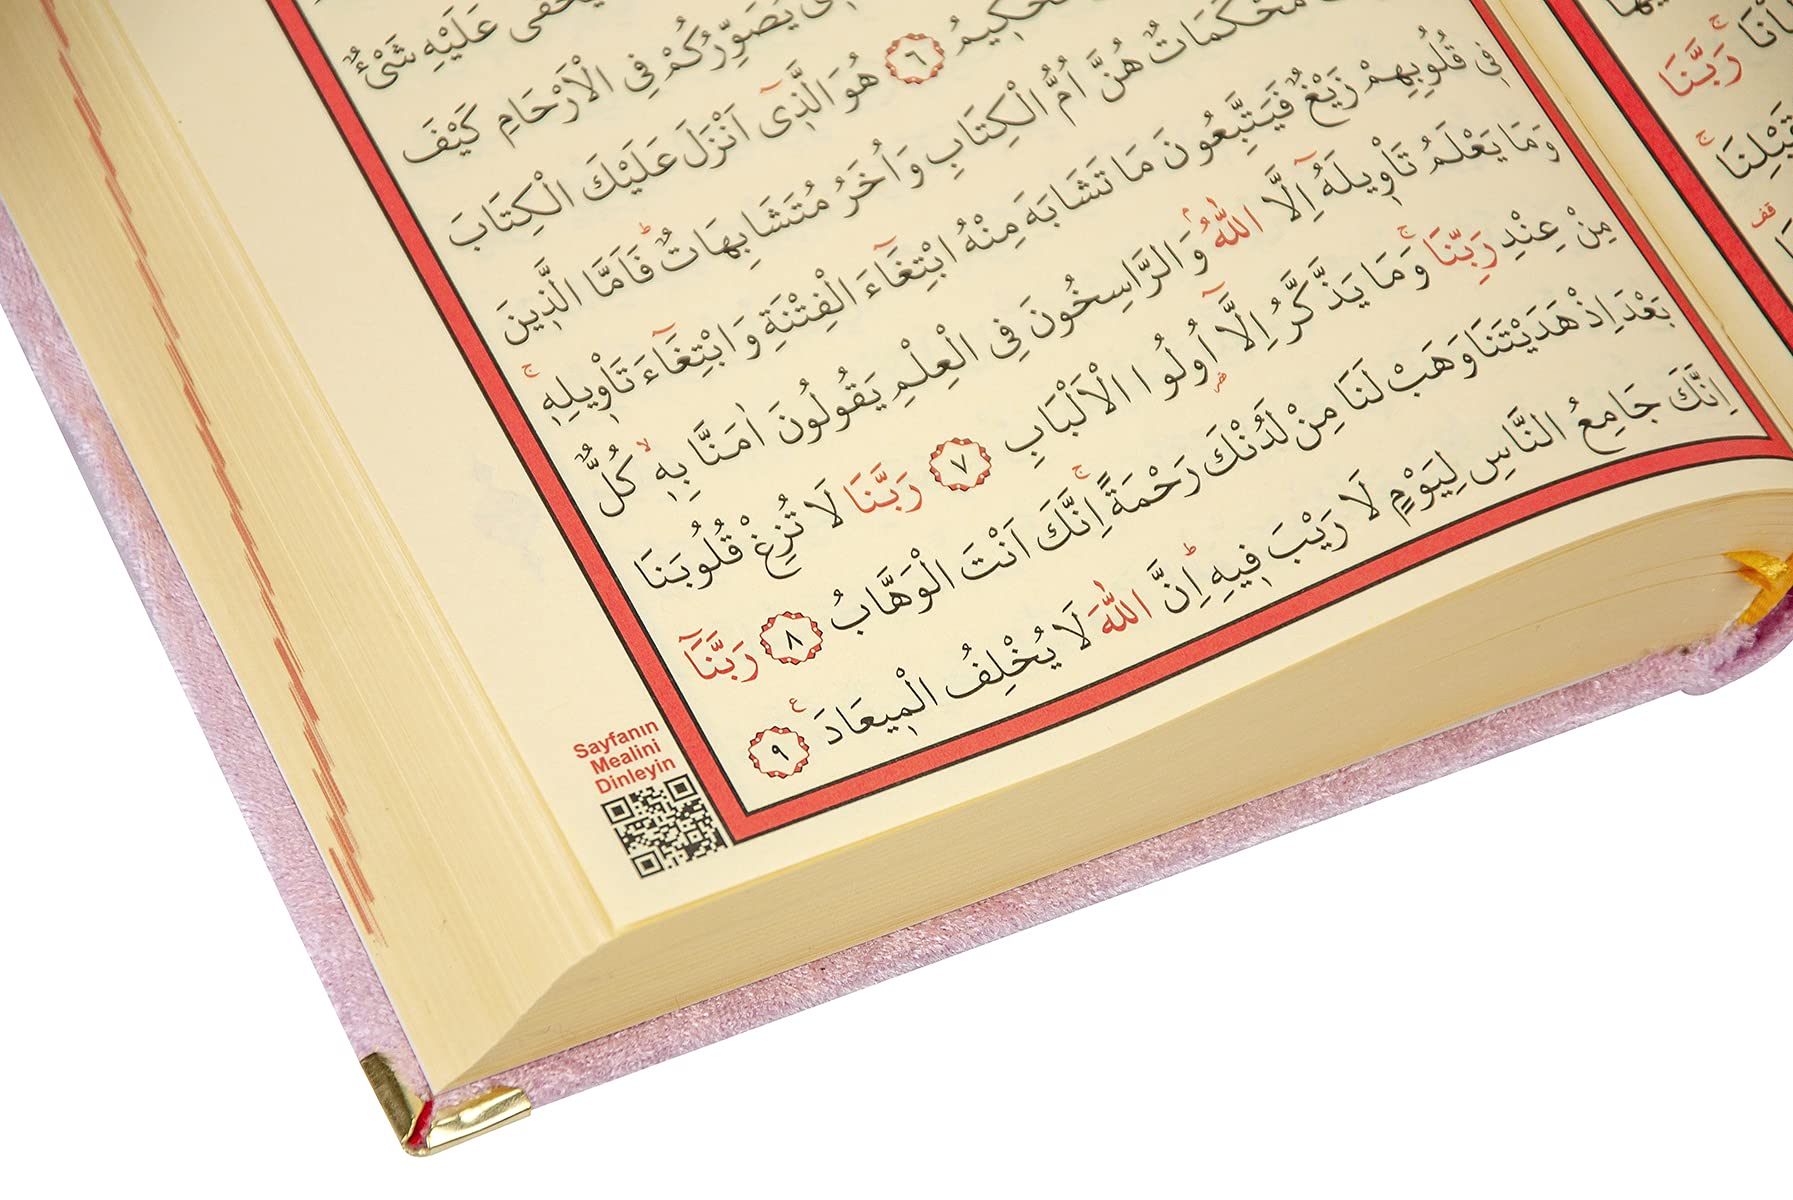 عَلَيْهِ شَيْءٌ
يُصَوِّرُكُمْ فِي الْاَرْحَامِ كَيْفَ
الْحَكِيمُ ٦ هُوَ الَّذ۪ٓي اَنْزَلَ عَلَيْكَ الْكِتَابَ
مُحْكَمَاتٌ هُنَّ اُمُّ الْكِتَابِ وَاُخَرُ مُتَشَابِهَاتٌۜ فَاَمَّا الَّذ۪ينَ
ف۪ي قُلُوبِهِمْ زَيْغٌ فَيَتَّبِعُونَ مَا تَشَابَهَ مِنْهُ ابْتِغَٓاءَ الْفِتْنَةِ وَابْتِغَٓاءَ تَأْو۪يلِه۪ۚ
وَمَا يَعْلَمُ تَأْو۪يلَهُٓ اِلَّا اللّٰهُۢ وَالرَّاسِخُونَ فِي الْعِلْمِ يَقُولُونَ اٰمَنَّا بِه۪ۙ كُلٌّ
مِنْ عِنْدِ رَبِّنَاۚ وَمَا يَذَّكَّرُ اِلَّٓا اُو۬لُوا الْاَلْبَابِ ٧ رَبَّنَا لَا تُزِغْ قُلُوبَنَا
بَعْدَ اِذْ هَدَيْتَنَا وَهَبْ لَنَا مِنْ لَدُنْكَ رَحْمَةًۚ اِنَّكَ اَنْتَ الْوَهَّابُ ٨ رَبَّنَٓا
اِنَّكَ جَامِعُ النَّاسِ لِيَوْمٍ لَا رَيْبَ ف۪يهِۜ اِنَّ اللّٰهَ لَا يُخْلِفُ الْم۪يعَادَ ٩ ع
Sayfanın
Mealini
Dinleyin
رَبَّنَا
قَبْلِنَاۚ
قف